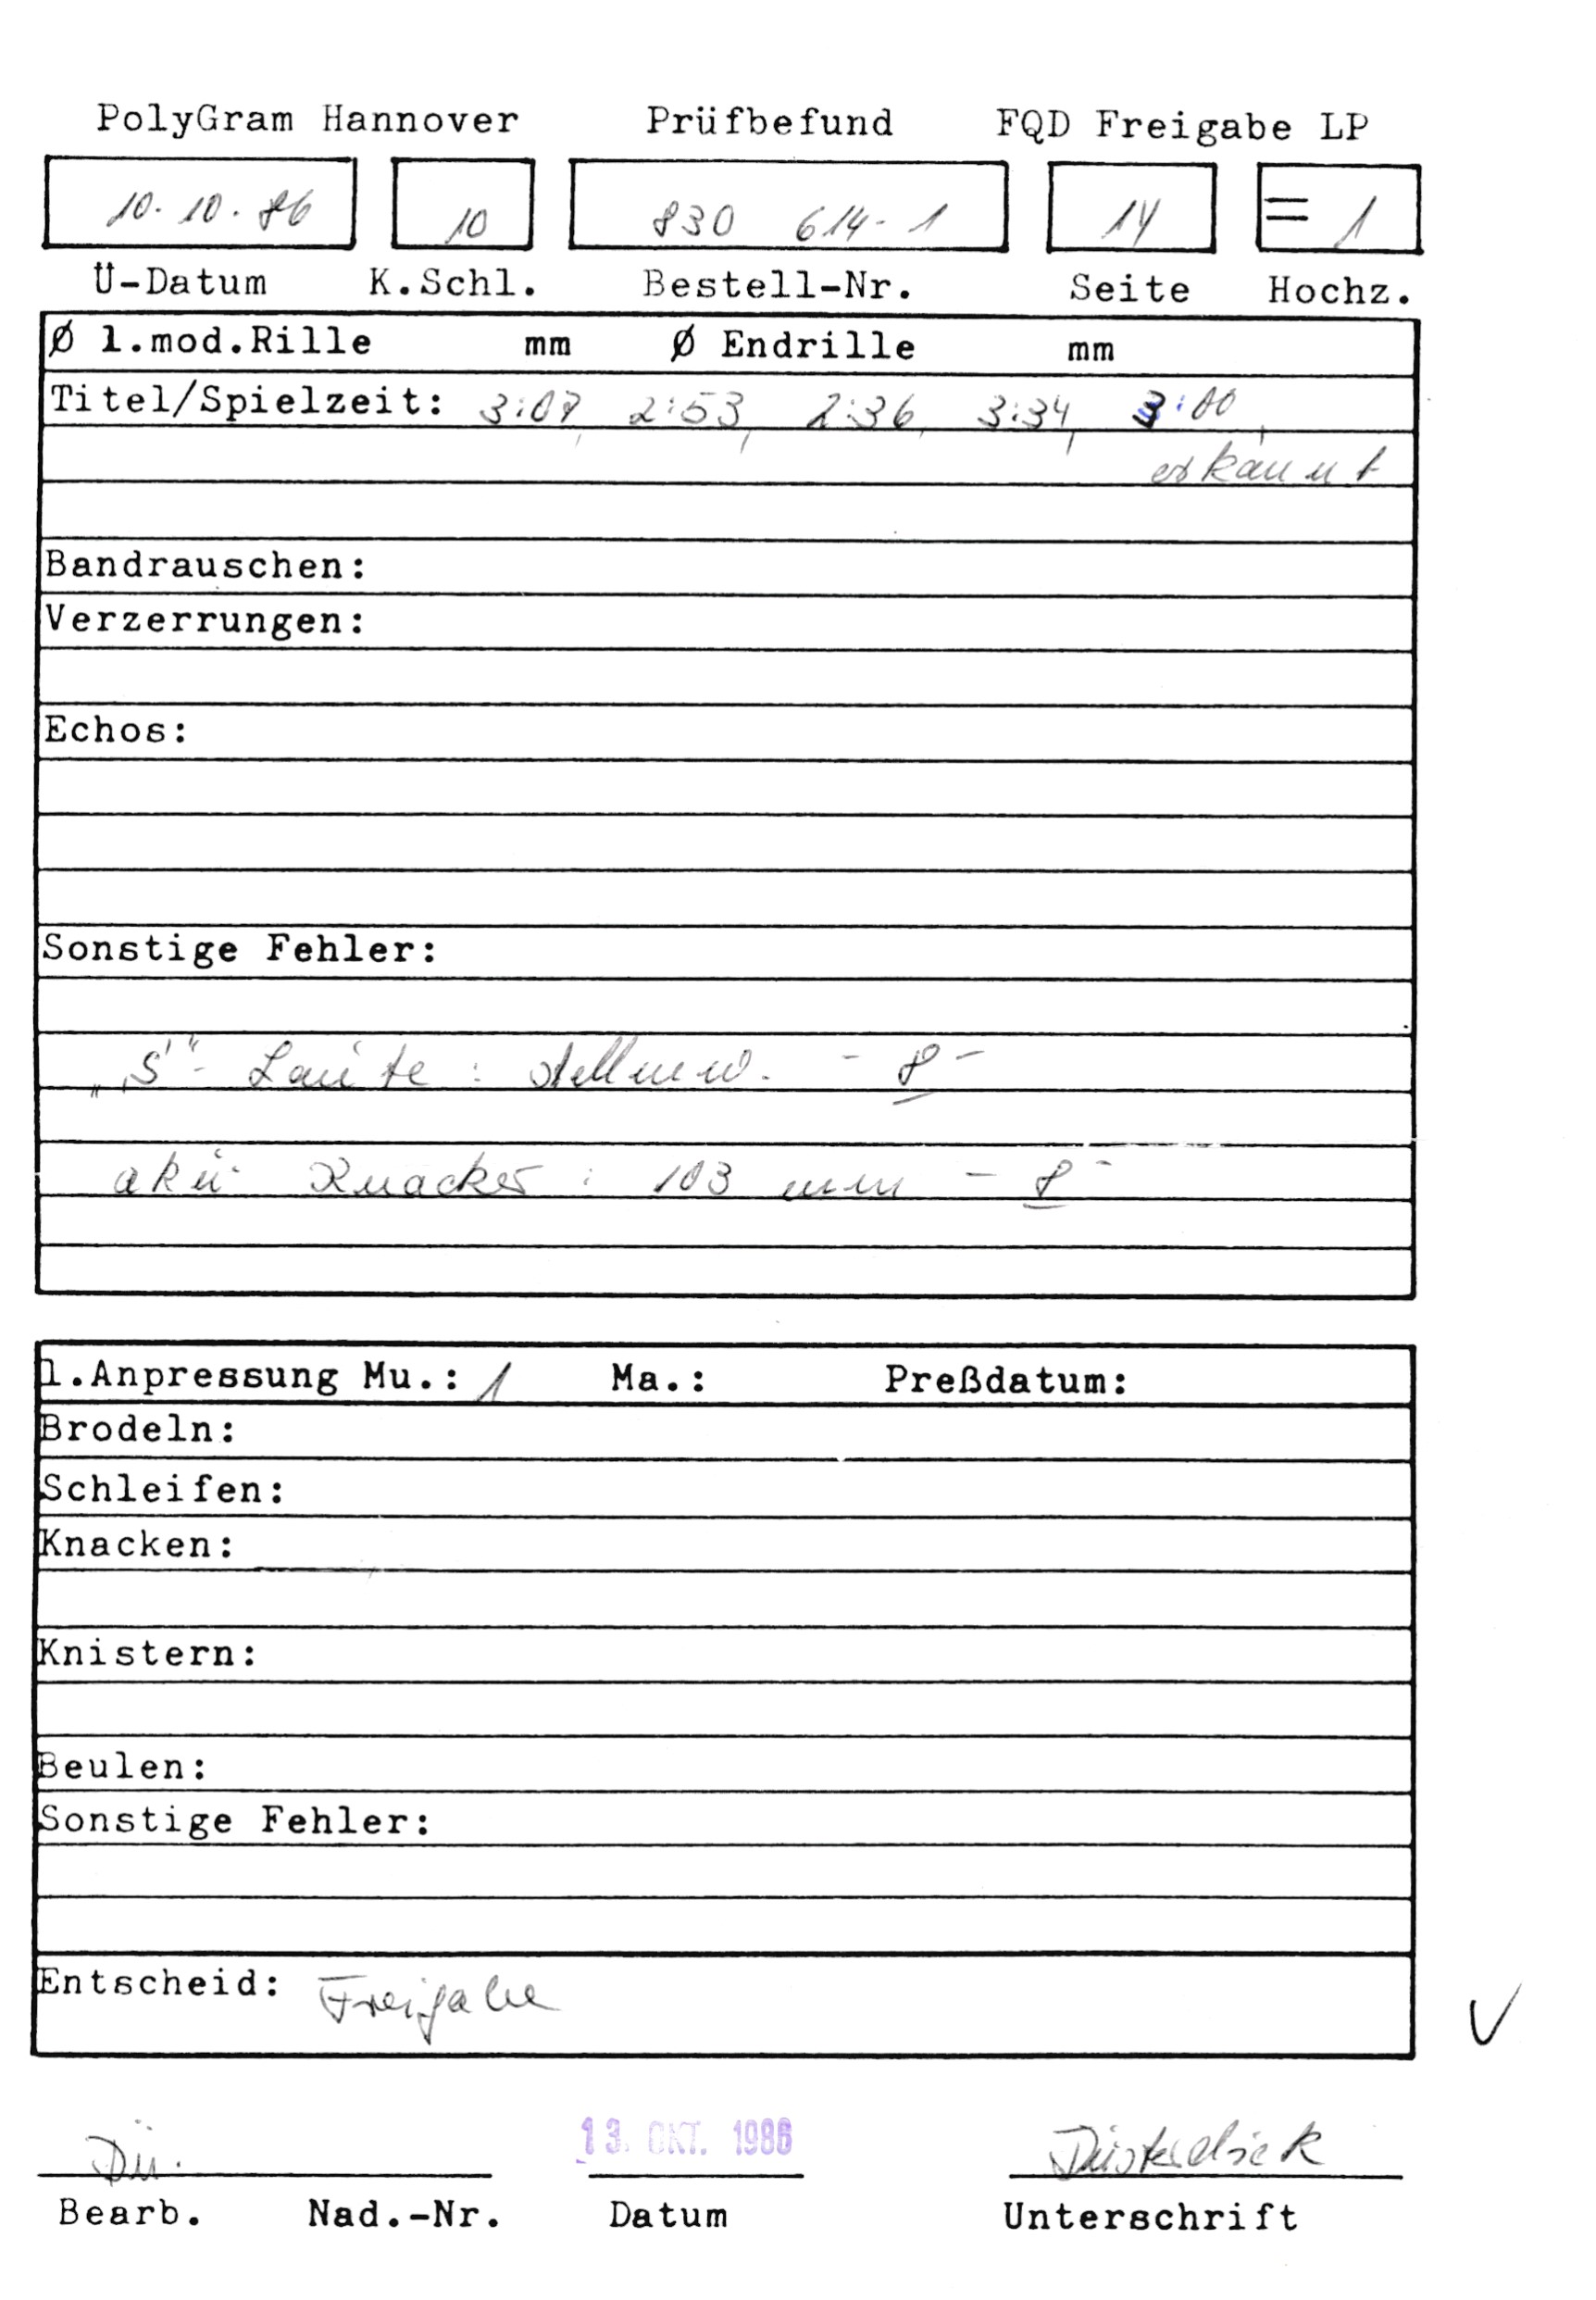 PolyGram Hannover Prüfbefund FQD Freigabe LP
10.10.86 10 830 614-1 14 = 1
Ü-Datum K.Schl. Bestell-Nr. Seite Hochz.
Ø 1.mod.Rille mm Ø Endrille mm
Titel/Spielzeit: 3:07, 2:53, 2:36, 3:34, 3:00,
erkannt
Bandrauschen:
Verzerrungen:
Echos:
Sonstige Fehler:
„S"- Laute : stellenw. - 8 -
Knacker : 103 mm - 8 -
1.Anpressung Mu.: 1 Ma.: Preßdatum:
Brodeln:
Schleifen:
Knacken:
Knistern:
Beulen:
Sonstige Fehler:
Entscheid: Freigabe
Dü. 13. OKT. 1986 Düsterdiek
Bearb. Nad.-Nr. Datum Unterschrift